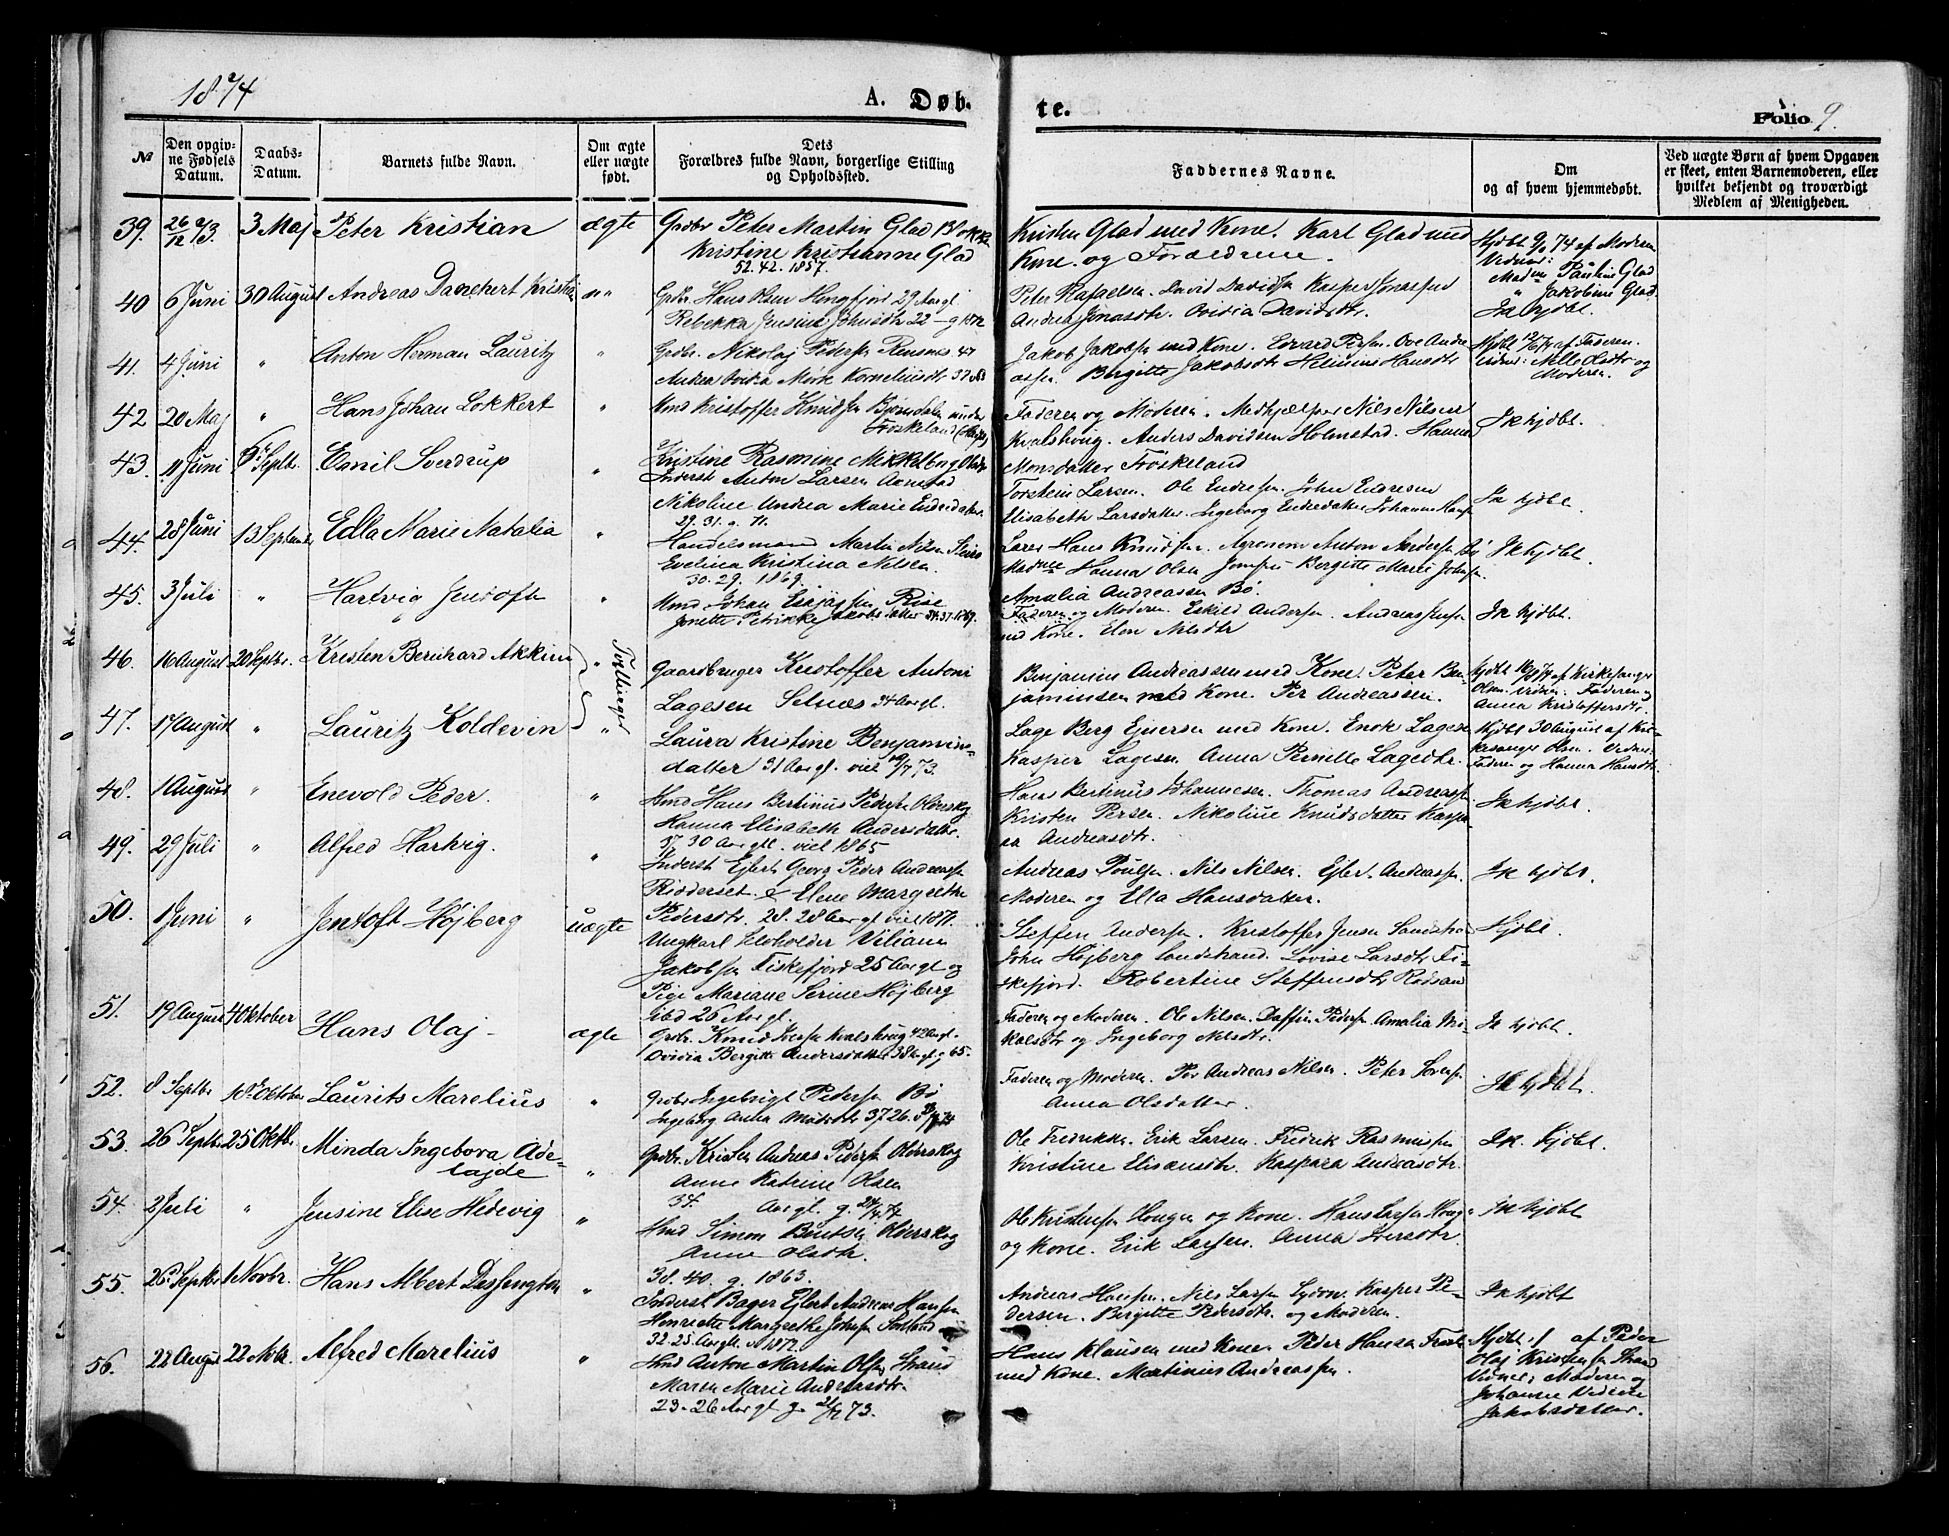 1874
A. Døb-
te.
Folio 9.
№
Den opgiv-
ne Fødsels
Datum.
Daabs-
Datum.
Barnets fulde Navn.
Om ægte
eller uægte
født.
Dets
Forældres fulde Navn, borgerlige Stilling
og Opholdssted.
Faddernes Navne.
Om
og af hvem hjemmedøbt.
Ved uægte Børn af hvem Opgaven
er skeet, enten Barnemoderen, eller
hvilket bekjendt og troværdigt
Medlem af Menigheden.
39. 26/12 73. 3 Maj Peter Kristian ægte Grdbr Peter Martin Glad
Kristine Kristianne Glad
52. 42. 1857.
Kristen Glad med Kone. Karl Glad med
Kone. og Forældrene.
Hjdbt 9/1 74 af Moderen
Vidner:
Mad Pauline Glad
" Jakobine Glad.
40 6 Juni 30 August Andreas Danckert Kristian " Grdbr. Hans Olsen Hengfjord 29 Aar gl.
Rebekka Jensine Johnsdtr 22 - g 1872
Peter Rafaelsen. David Davidsen Kasper Jonassen
Andrea Jonasdtr. Ovidia Davidsdtr.
Ik hjdbt.
41. 4 Juni " Anton Herman Lauritz " Grdbr. Nikolaj Pedersen 47
Andrea Ovidia Mørk Korneliusdtr 37
Jakob Jakobsen med Kone. Edvard Persen. Ove Andre
assen. Bergitte Jakobsdtr Helmine Hansdtr
Hjdbt af Faderen.
Vidner: Olsdtr og
Moderen.
42 20 Maj " Hans Johan Lokkert " Hmd Kristoffer Knudsen Bjørndalen under
Frøskeland
Kristine Rasmine Mikkelborg
Faderen og Moderen. Medhjælper Nils Nilsen
Kvalshaug. Anders Davidsen Holmstad. Hanna
Monsdatter Frøskeland
Ik hjdbt.
43. 11 Juni 6 Septb. Emil Sverdrup " Inderst Anton Larsen
Nikoline Andrea Marie Endresdatter
29. 31. g. 71.
Torstein Larsen. Ole Endresen. John Endresen
Elisabeth Larsdatter. Ingeborg Endredatter Johanna
Ik hjdbt
44. 28 Juni 13 September Edla Marie Natalia " Handelsmand Martin Nilsen Steiro
Evelina Kristina Nilsen.
30. 29. 1869.
Lærer Hans Knudsen. Agronom Anton Andersen Bø
Hanna Olsen Bergitte Marie
Amalia Andreassen Bø.
Ik hjdbt
45. 3 Juli " Hartvig Jentoft " Hmd Johan Esajassen Rise
Jonette Petrikke Jakobsdatter 34. 37. 1867.
Faderen og Moderen. Eskild Andersen. Andreas Jensen
med Kone. Elen Nilsdtr
Ik hjdbt
46. 16 August 20 Septbr. Kristen Bernhard Akkim " Tvillinger Gaardbruger Kristoffer Antoni
Lagesen Selnæs 34 Aar gl.
Benjamin Andreassen med Kone. Peter Ben-
jaminsen med Kone. Per Andreassen.
Hjdbt af Kirkesanger
Olsen. Vidner. Faderen og
Anna Kristoffersdtr.
47. 17 August " Lauritz Koldevin " Laura Kristine Benjamins-
datter 31 Aar gl. viel 73.
Lage Berg Ejnersen med Kone. Enok Lagesen
Kasper Lagesen Anna Pernille Lagedtr.
Hjdbt 30 August af Kir-
kesanger Olsen. Vidner:
Faderen og Hanna Hansdtr.
48. 1 August " Enevold Peder. " Hmd Hans Bertinius Pedersen Olderskog
Hanna Elisabeth Andersdatter.
37 30 Aar gl. viel 1865
Hans Bertinus Johannesen. Thomas Andreassen
Kristen Persen. Nikoline Knudsdatter Kaspa-
ra Andreasdtr.
Ik hjdbt.
49. 29 Juli " Alfred Hartvig. " Inderst Ejlert Georg Peder Andreassen
Ridderset. & Elene Margrethe
Pedersdtr. 28. 28 Aar gl viel 1871.
Andreas Poulsen. Nils Nilsen. Ejlert Andreassen.
Moderen og Ella Hansdatter.
Ik hjdbt.
50. 1 Juni " Jentoft Højberg uægte Ungkarl Selvholder Viliam
Jakobsen Fiskefjord 25 Aar gl og
Pige Mariane Serine Højberg
26 Aar gl.
Steffen Andersen. Kristoffer Jensen
John Højberg Lovise Larsdtr Fi-
skefjord. Robertine Steffensdtr
Hjdbt.
51. 19 August 4 Oktober Hans Olaj. ægte Grdbr. Knud Iversen Kvalshaug 42 Aar gl.
Ovidia Bergitte Andersdatter 38 Aar gl g 65.
Faderen og Moderen. Ole Nilsen. Daffin Pedersen. Amalia Mi-
kalsdtr og Ingeborg Nilsdtr.
Ik hjdbt.
52. 8 Septbr 18 Oktober Laurits Marelius " Grdbr Ingebrigt Pedersen Bø
Ingeborg Anna 37 26.
Faderen og Moderen. Per Andreas Nilsen. Peter Sørensen
Anna Olsdatter.
Ik hjdbt.
53. 26 Septbr 25 Oktb. Minda Ingebora Ade-
lajde " Grdbr. Kristen Andreas Pedersen Olderskog
Anne Katrine Olsen
34. Aar gl. g. 24/
Ole Fredriksen. Erik Larsen. Fredrik Rasmussen
Kristine Elisæusdtr. Kaspara Andreasdtr.
Ik. hjdbt.
54. 2 Juli " Jensine Elise Hedevig " Hmd Simon Bentsen Olderskog
Anne Olsdtr.
38. 40. g. 1863.
Ole Kristensen Hougen og Kone. Hans Larsen Houg
og Kone. Erik Larsen. Anna Iversdtr.
Ik hjdbt
55. 26 Septbr 1 Novbr. Hans Albert Dessengton " Inderst Bager Ejlert Andreas Hansen
Henriette Margrethe Johnsen Sortland
32. 25 Aar gl. v 1872.
Andreas Hansen. Nils Larsen Lydon. Kasper Pe-
dersen. Birgitte Pedersdtr. og Moderen.
Ik hjdbt
56. 22 August 22 Novbr. Alfred Marelius " Hmd Anton Martin Olsen Strand
Maren Marie Andreasdtr.
23-26 Aar gl g. 73.
Hans Klausen med Kone. Peder Hansen
med Kone. Martinius Andreassen.
Hjdbt. af Peder
Olaj Kristensen Strand
Vidner; Moderen og
Johanne
Jakobsdatter.